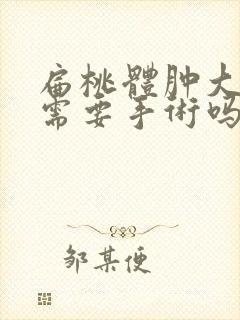 扁桃體肿大
需要手術吗
邹某便